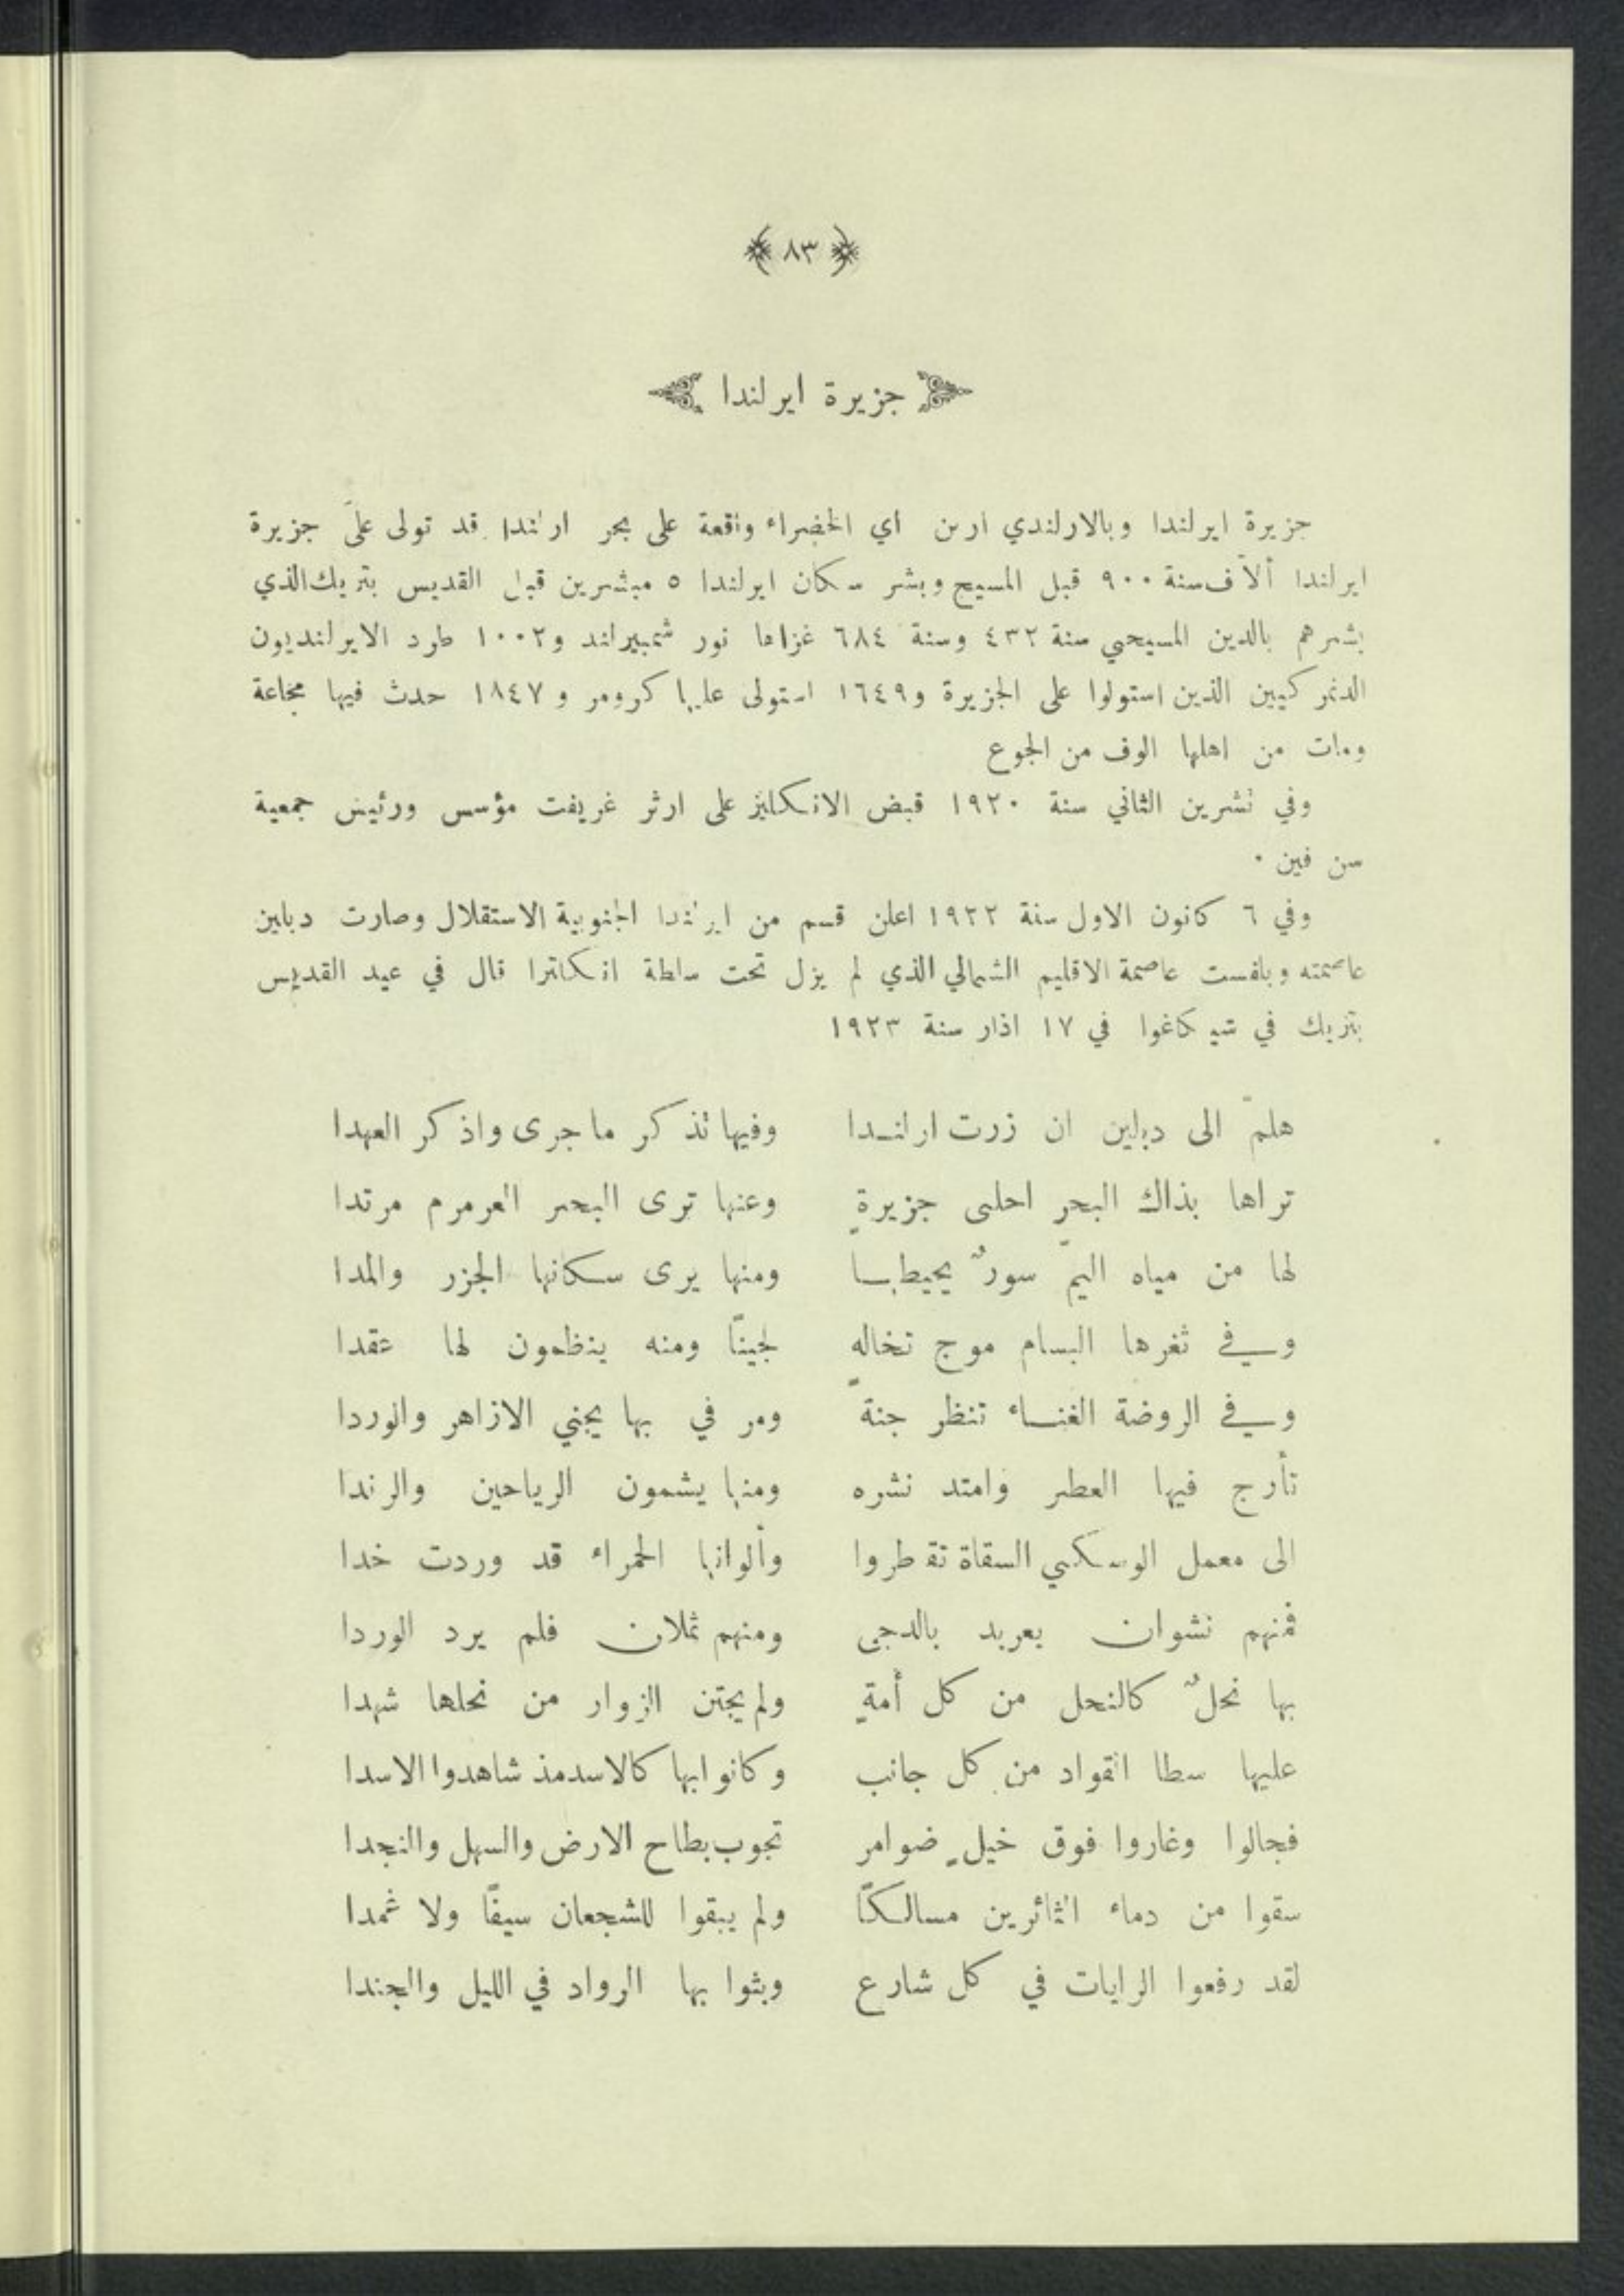 ٨٣
جزيرة ايرلندا
جزيرة ايرلندا وبالارلندي ارن اي الخضراء واقعة على بحر ارلندا قد تولى علىَ جزيرة
ايرلندا ألآف سنة ٩٠٠ قبل المسيح وبشر سكان ايرلندا ٥ مبشرين قبل القديس بتريك الذي
بشرهم بالدين المسيحي سنة ٤٣٢ وسنة ٦٨٤ غزاها نور ثمبيراند و١٠٠٢ طرد الايرلنديون
الدنمركيين الذين استولوا على الجزيرة و١٦٤٩ استولى عليها كرومر و ١٨٤٧ حدث فيها مجاعة
ومات من اهلها الوف من الجوع
وفي تشرين الثاني سنة ١٩٢٠ قبض الانكليز على ارثر غريفت مؤسس ورئيس جمعية
سن فين ٠
وفي ٦ كانون الاول سنة ١٩٢٢ اعلن قسم من ايرلندا الجنوبية الاستقلال وصارت دبلين
عاصمته وبلفست عاصمة الاقليم الشمالي الذي لم يزل تحت سلطة انكلترا قال في عيد القديس
بتريك في شيكاغوا في ١٧ اذار سنة ١٩٢٣
هلمّ الى دبلين ان زرت ارلندا وفيها تذكر ما جرى واذكر العهدا
تراها بذاك البحرِ احلى جزيرةٍ وعنها ترى البحر العرمرم مرتدا
لها من مياه اليمّ سورٌ يحيطها ومنها يرى سكانها الجزر والمدا
وفي ثغرها البسام موج تخاله لجينًا ومنه ينظمون لها عقدا
وفي الروضة الغناء تنظر جنةً ومر في بها يجني الازاهر والوردا
تأرج فيها العطر وامتد نشره ومنها يشمون الرياحين والرندا
الى معمل الوسكي السقاة تقطروا وألوانها الحمراء قد وردت خدا
فمنهم نشوان يعربد بالدجى ومنهم ثملان فلم يرد الوردا
بها نحلٌ كالنحل من كل أمةٍ ولم يجتن الزوار من نحلها شهدا
عليها سطا القواد من كل جانب وكانوا بها كالاسد مذ شاهدوا الاسدا
فجالوا وغاروا فوق خيلٍ ضوامر تجوب بطاح الارض والسهل والنجدا
سقوا من دماء الثائرين مسالكًا ولم يبقوا للشجعان سيفًا ولا غمدا
لقد رفعوا الرايات في كل شارع وبثوا بها الرواد في الليل والجندا